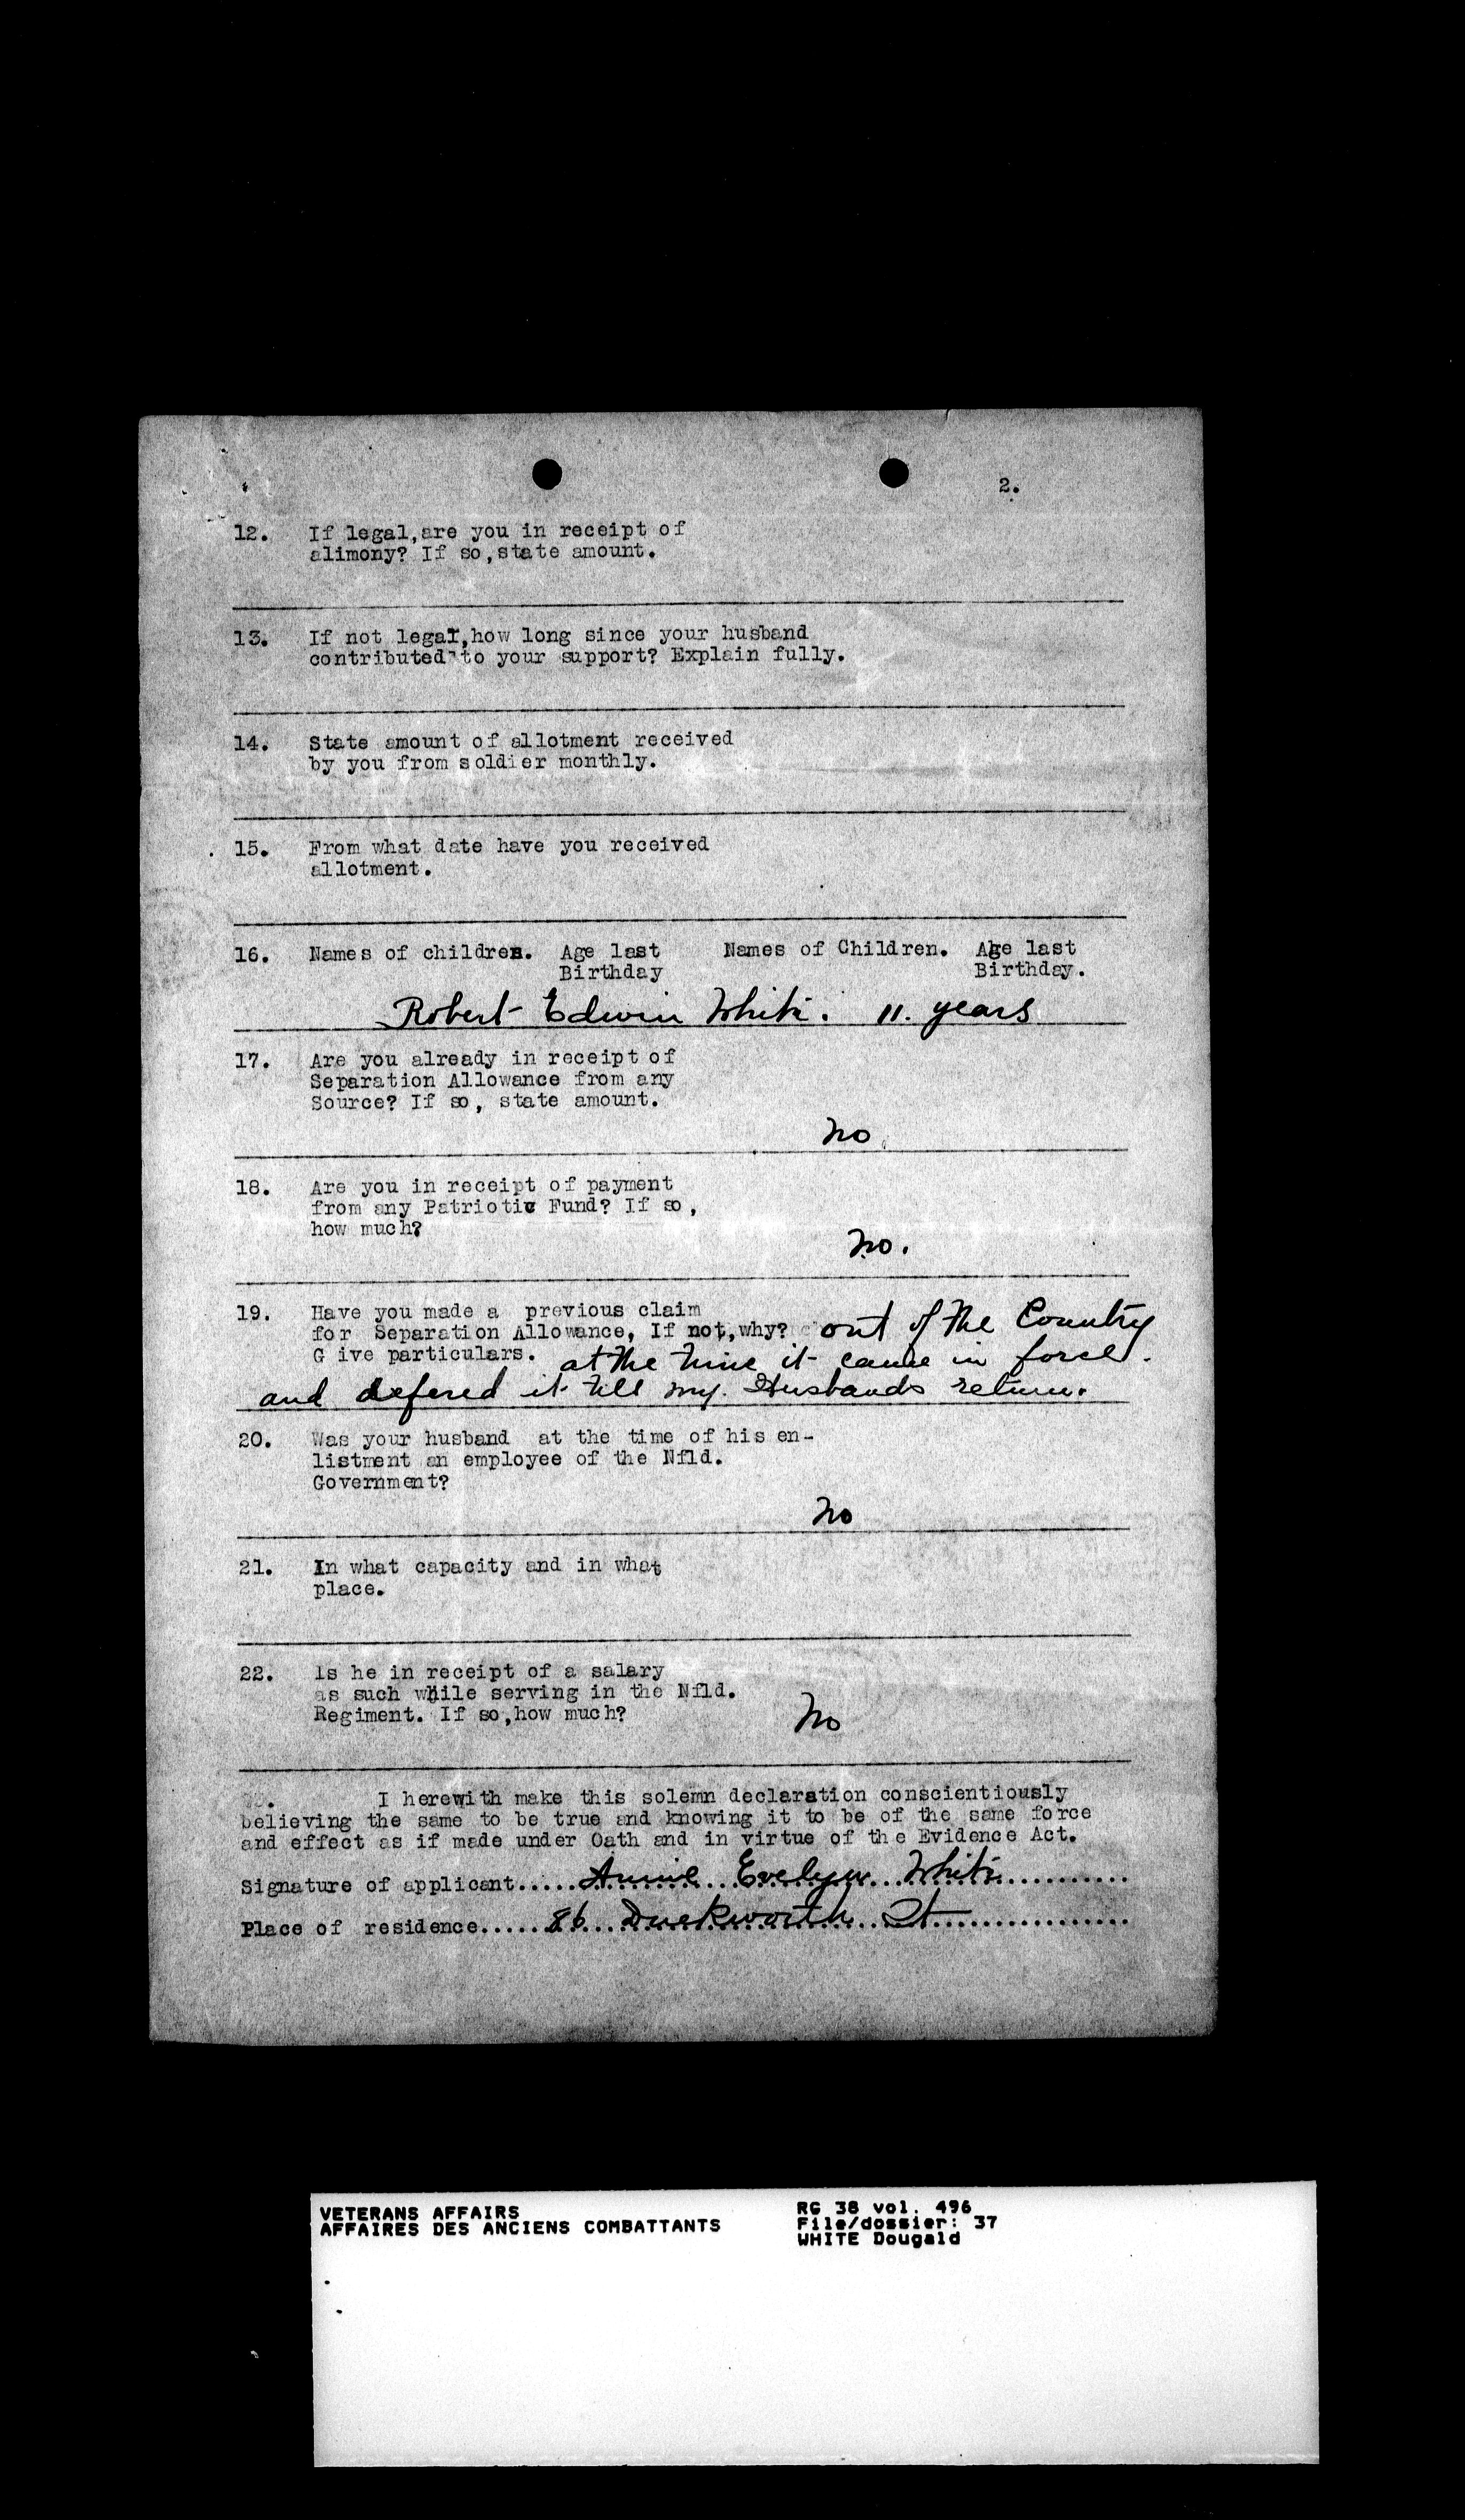 2.
12. If legal,are you in receipt of
alimony? If so,state amount.
13. If not legal,how long since your husband
contributed to your support? Explain fully.
14. State amount of allotment received
by you from soldier monthly.
15. From what date have you received
allotment.
16. Names of children. Age last Names of Children. Age last
Birthday Birthday.
Robert Edwin White. 11. years
17. Are you already in receipt of
Separation Allowance from any
Source? If so, state amount.
No
18. Are you in receipt of payment
from any Patriotic Fund? If so,
how much?
No.
19. Have you made a previous claim
for Separation Allowance, If not,why? out of the Country
G ive particulars. at the time it came in force.
and defered it till my Husbands return.
20. Was your husband at the time of his en-
listment an employee of the Nfld.
Government?
No
21. In what capacity and in what
place.
22. Is he in receipt of a salary
as such while serving in the Nfld.
Regiment. If so,how much?
No
I herewith make this solemn declaration conscientiously
believing the same to be true and knowing it to be of the same force
and effect as if made under Oath and in virtue of the Evidence Act.
Signature of applicant..... Annie Evelyn White
Place of residence...... 86 Duckworth St
VETERANS AFFAIRS RG 38 vol. 496
AFFAIRES DES ANCIENS COMBATTANTS File/dossier: 37
WHITE Dougald